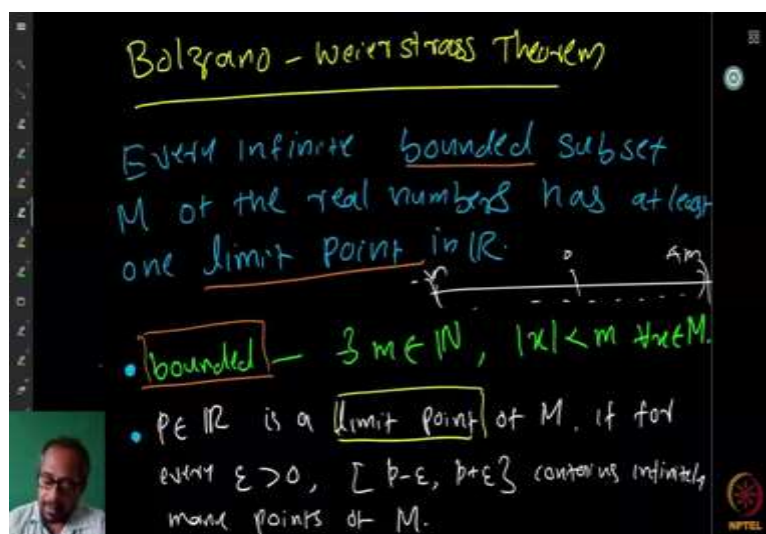 Bolzano - Weierstrass Theorem
Every infinite bounded subset
M of the real numbers has atleast
one limit point in ℝ.
-m 0 +m
• bounded — ∃ m ∈ ℕ, |x| < m ∀x∈M.
• p ∈ ℝ is a limit point of M. if for
every ε > 0, [p-ε, p+ε] contains infinitely
many points of M.
NPTEL